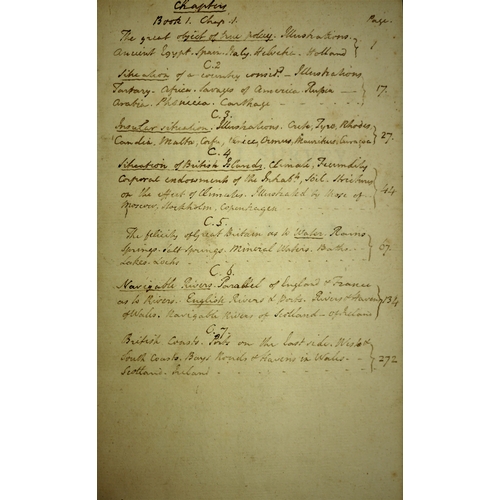 Chapters
Book 1. Chap. 1. Page.
The great object of true policy. Illustrations.
Ancient Egypt. Spain. Italy. Helvetia. Holland } 1
C. 2
Situation of a country consid.d – Illustrations,
Tartary. Africa. Savages of America. Russia —
Arabia. Phenecia. Carthage - - - - } 17.
C. 3.
Insular situation. Illustrations. Crete, Tyre, Rhodes,
Candia, Malta, Corfu, Ormus, Mauritius, Curaçoa } 27.
C. 4
Situation of British Islands. Climate, Fecundity
Corporal endowments of the Inhabts. Soil. Strictures
on the effect of Climates. Illustrated by those of
Moscow, Stockholm, Copenhagen } 44
C. 5.
The felicity of Great Britain as to Water. Rains
Springs. Salt Springs. Mineral Waters. Baths. -
Lakes. Lochs - - - - } 67.
C. 6.
Navigable Rivers. Parallel of England & France
as to Rivers. English Rivers & Ports. Rivers & Havens
of Wales. Navigable Rivers of Scotland – of Ireland } 134
C. 7.
British Coasts. Ports on the East side. West &
South Coasts. Bays Roads & Havens in Wales - -
Scotland. Ireland - - - - } 272